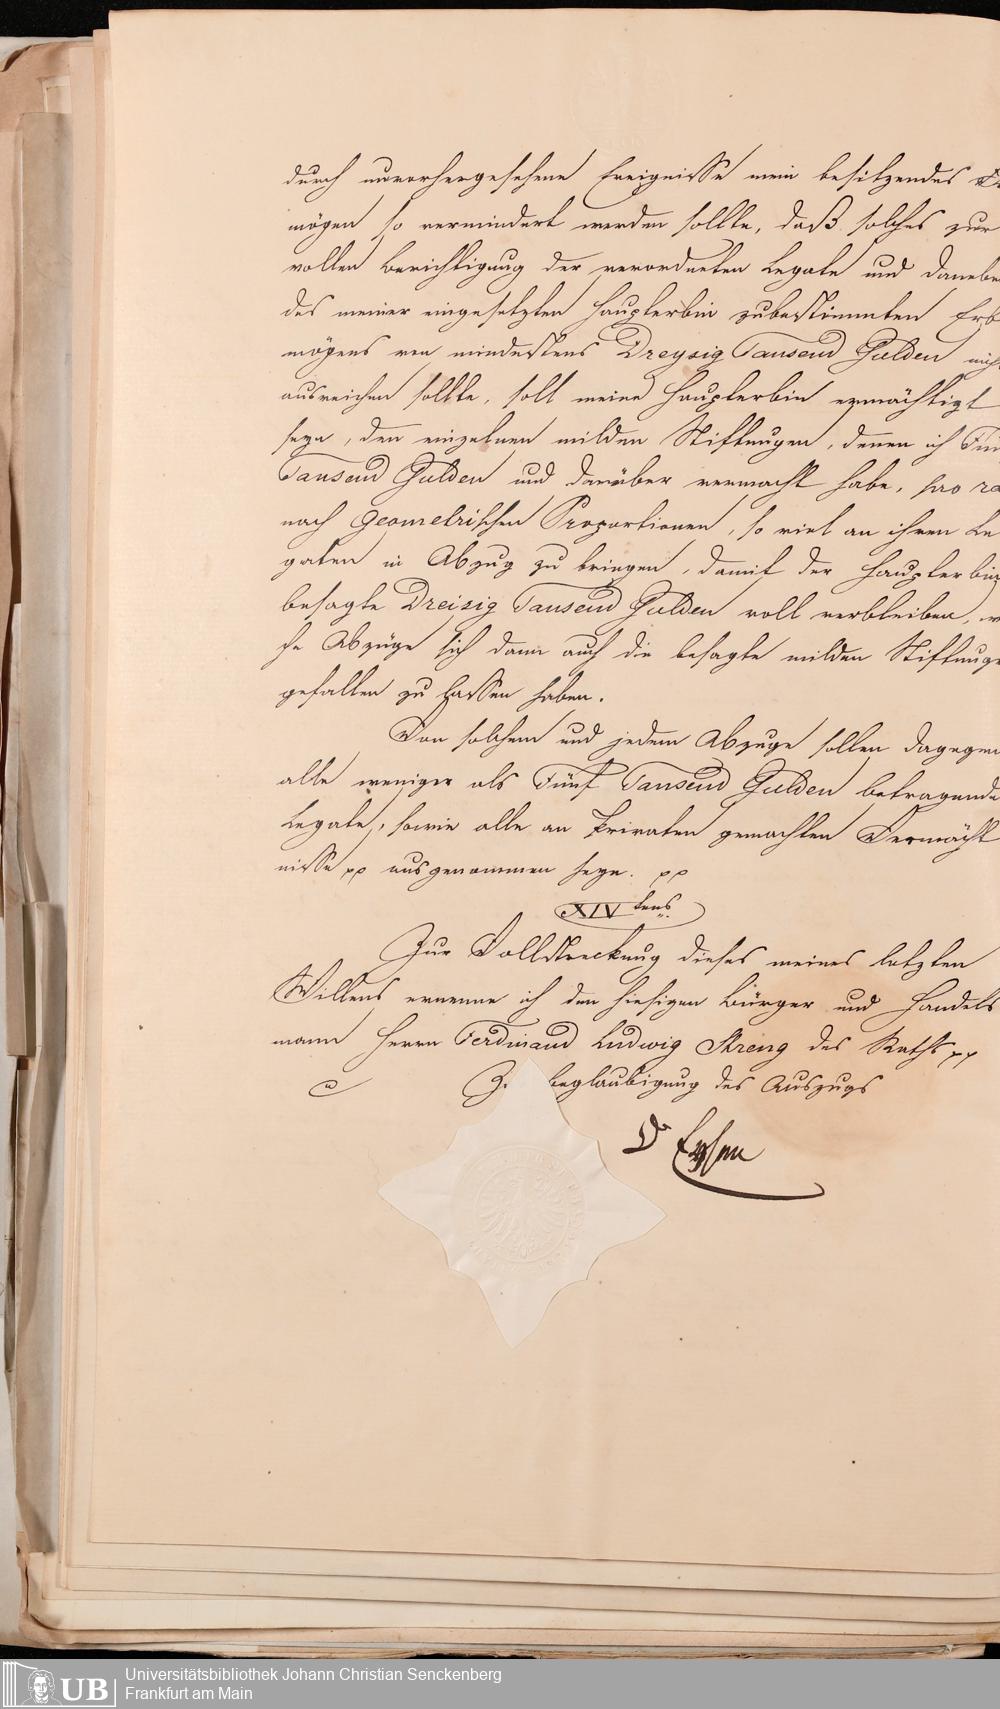 durch unvorhergesehene Ereignisse mein besitzendes
mögen so vermindert werden sollte, daß solches zur
vollen Berichtigung der verordneten Legate und danebe
des meiner eingesetzten Haupterbin zubestimmten Erb
mögens von mindestens Dreysig Tausend Gulden nich
ausreichen sollte, soll meine Haupterbin ermächtigt
seyn, den einzelnen milden Stiftungen, denen ich Fün
Tausend Gulden und darüber vermacht habe, pro ra
nach Geometrischen Proportionen, so viel an ihren Le
gaten in Abzug zu bringen, damit der Haupterbin
besagte Dreisig Tausend Gulden voll verbleiben, w
che Abzüge sich dann auch die besagte milden Stiftunge
gefallen zu lassen haben.
Von solchem und jedem Abzuge sollen dagegen
alle weniger als Fünf Tausend Gulden betragende
Legate, sowie alle an Privaten gemachten Vermächt
nisse pp ausgenommen seyn. pp
XIV tens
Zur Vollstreckung dieses meines letzten
Willens ernenne ich den hiesigen Bürger und Handels
mann Herrn Ferdinand Ludwig Streng des Raths pp
Beglaubigung des Auszugs
Dr Eysen
UB Universitätsbibliothek Johann Christian Senckenberg
Frankfurt am Main